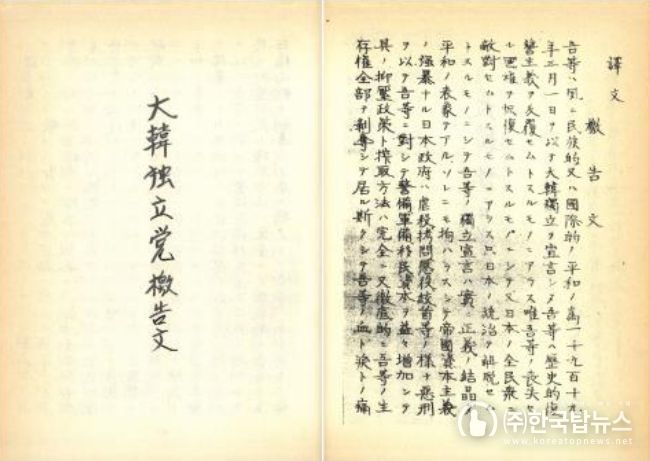 大韓独立党檄告文
譯文
檄告文
吾等ハ夙ニ民族的又ハ國際的ノ平和ノ爲一千九百十九
年三月一日ヲ以テ大韓獨立ヲ宣言シタ吾等ハ歴史的復
讐主義ヲ反復セムトスルモノニアラス唯吾等ノ喪失セ
ル國ヲ恢復セムトスルモノニシテ又日本ノ全民衆ニ
敵對セムトスルモノニアラス只日本ノ統治ヲ離脱セム
トスルモノニシテ吾等ノ獨立宣言ハ實ニ正義ノ結晶
平和ノ表象テアルソレニモ拘ハラスシテ帝國資本主義
ノ强暴ナル日本政府ハ虐殺拷問懲役絞首等ノ様ナ惡刑
ヲ以テ吾等ニ對シテ警備軍備移民資本ヲ益々増加シテ
其ノ抑壓政策ト搾取方法ハ完全ニ又徹底的ニ吾等ノ生
存権全部ヲ剥奪シテ居ル斯クシテ吾等ノ血ト涙トノ痛
(주)한국탑뉴스
www.koreatopnews.net